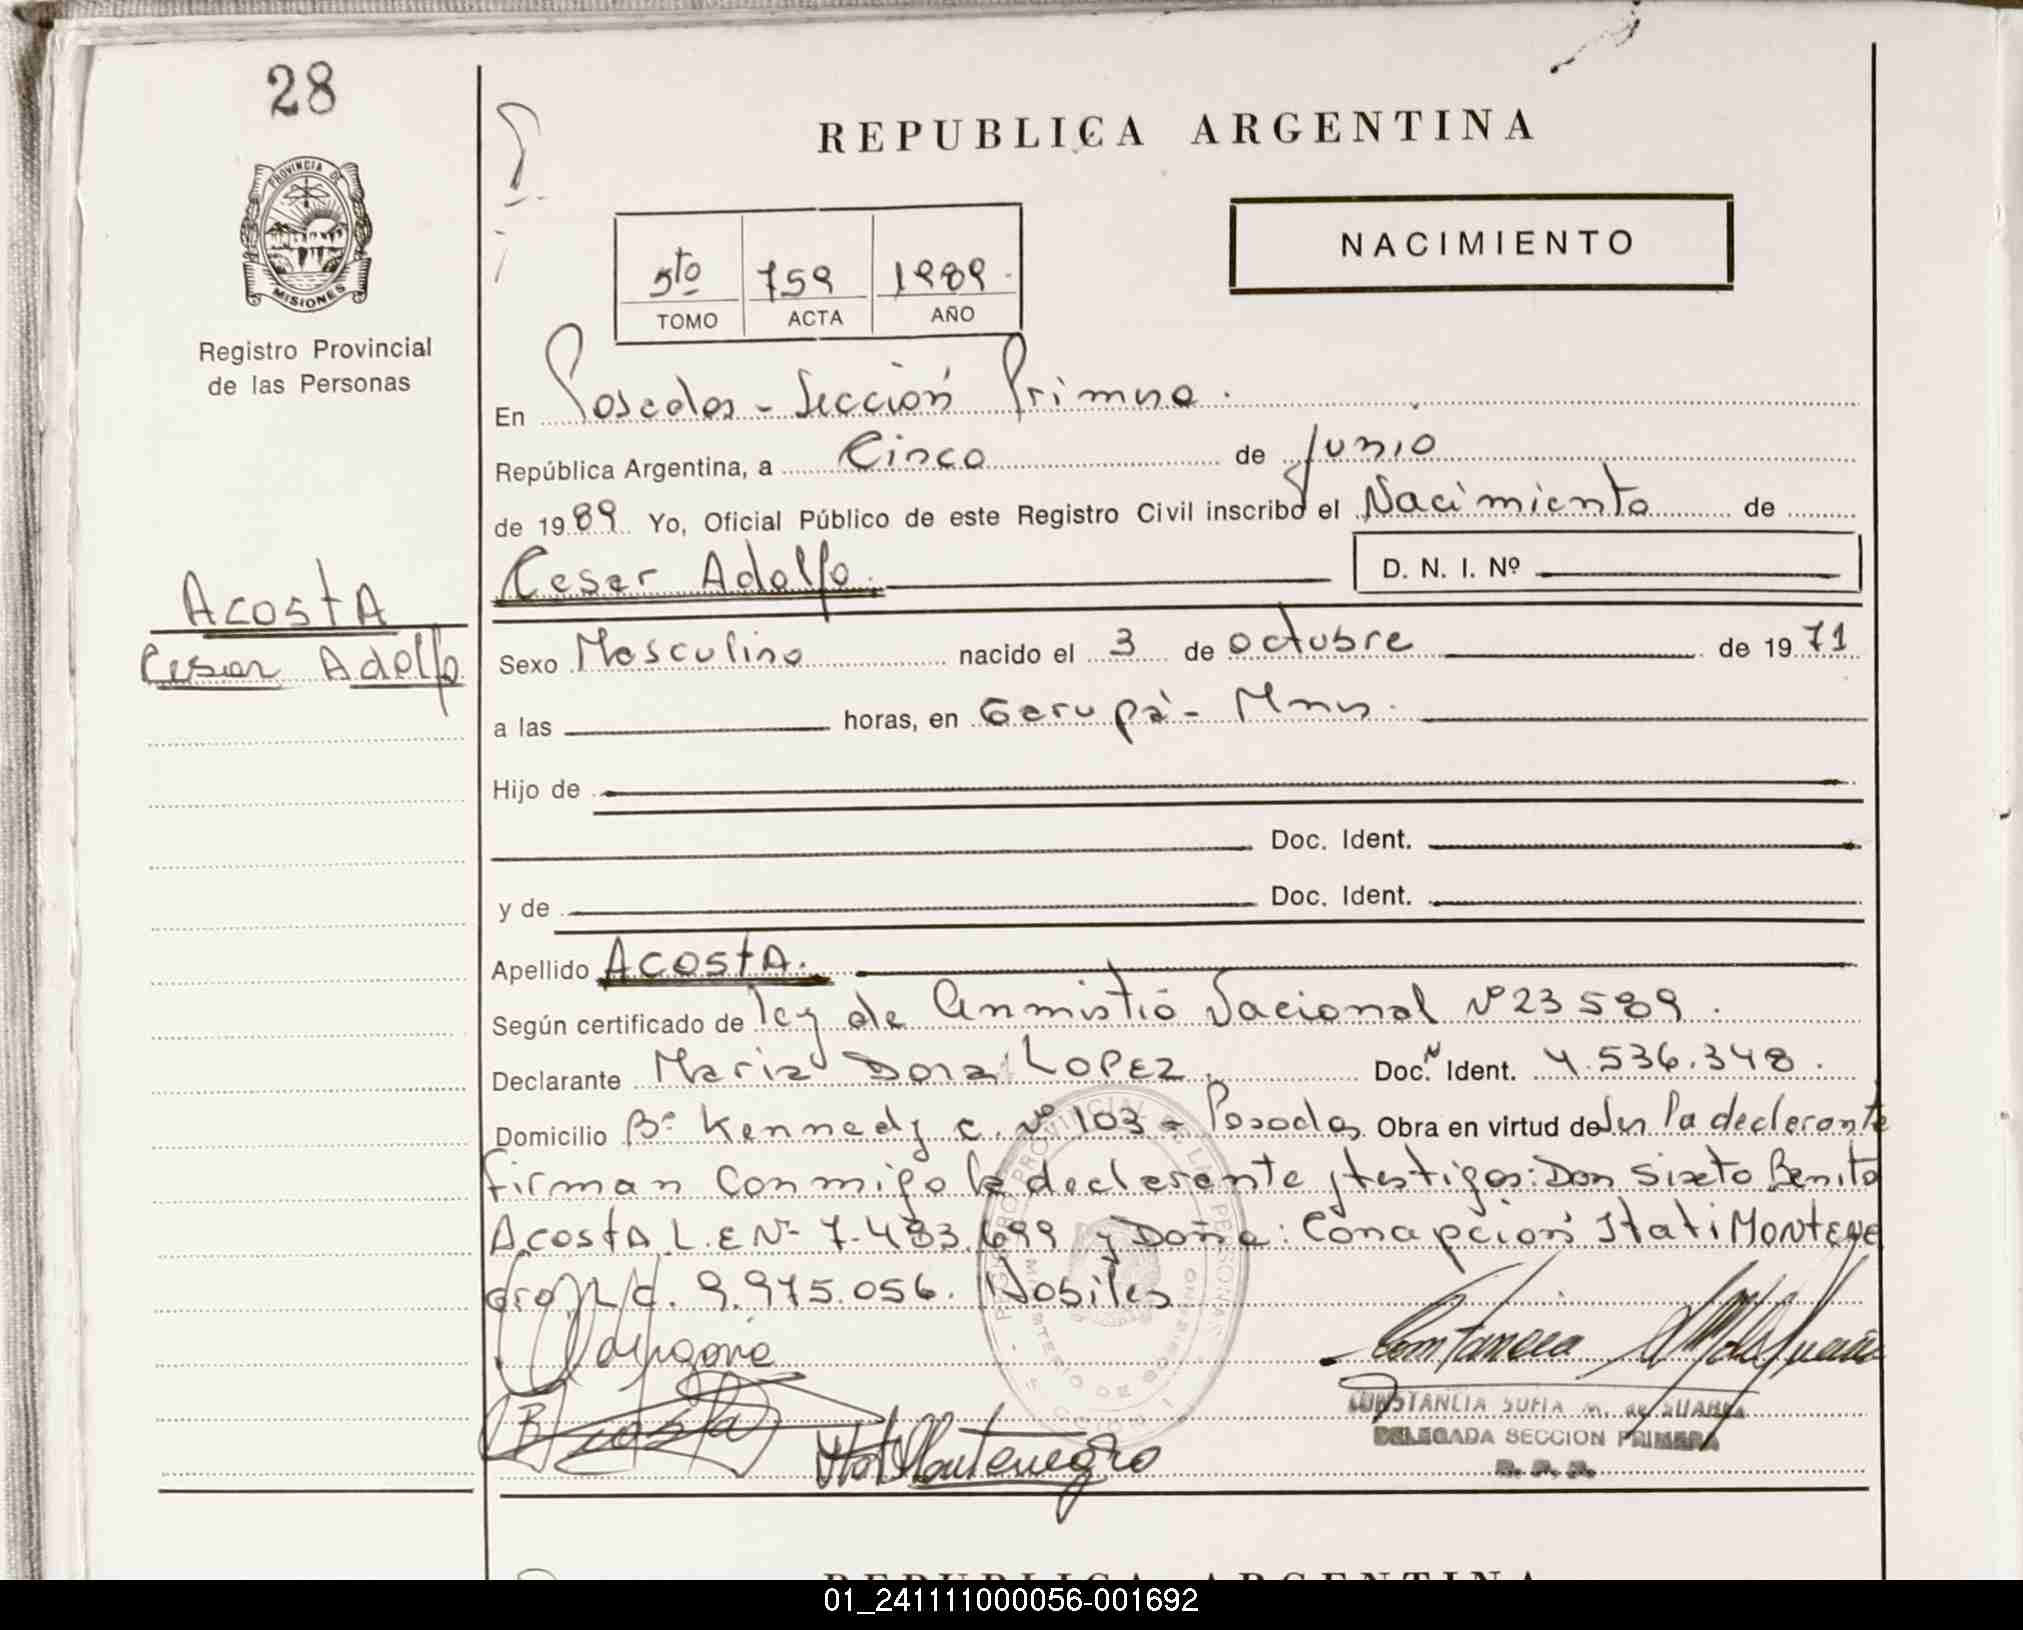 28
REPUBLICA ARGENTINA
PROVINCIA DE
MISIONES
Registro Provincial
de las Personas
NACIMIENTO
5to 759 1989
TOMO ACTA AÑO
En Posadas - Sección Primera.
República Argentina, a Cinco de Junio
de 1989 Yo, Oficial Público de este Registro Civil inscribo el Nacimiento de
Cesar Adolfo. D. N. I. Nº
ACOSTA
Cesar Adolfo
Sexo Masculino nacido el 3 de octubre de 1971
a las horas, en Garupá - Mnes.
Hijo de
Doc. Ident.
y de Doc. Ident.
Apellido ACOSTA.
Según certificado de ley de Anmistió Nacional Nº 23589.
Declarante Maria Dora LOPEZ. Doc. Ident. 4.536.348.
Domicilio Bº Kennedy c. Nº 103 - Posadas Obra en virtud de ser la declarante
firman conmigo la declarante y testigos: Don Sixto Benito
ACOSTA L.E Nº 7.483.699 y Doña: Concepción Itati MONTENE
gro L/c. 9.975.056.
B Acosta
Itati Montenegro
CONSTANCIA SOFIA M. de SUAREZ
DELEGADA SECCION PRIMERA
R. P. P.
REPUBLICA ARGENTINA
01_241111000056-001692